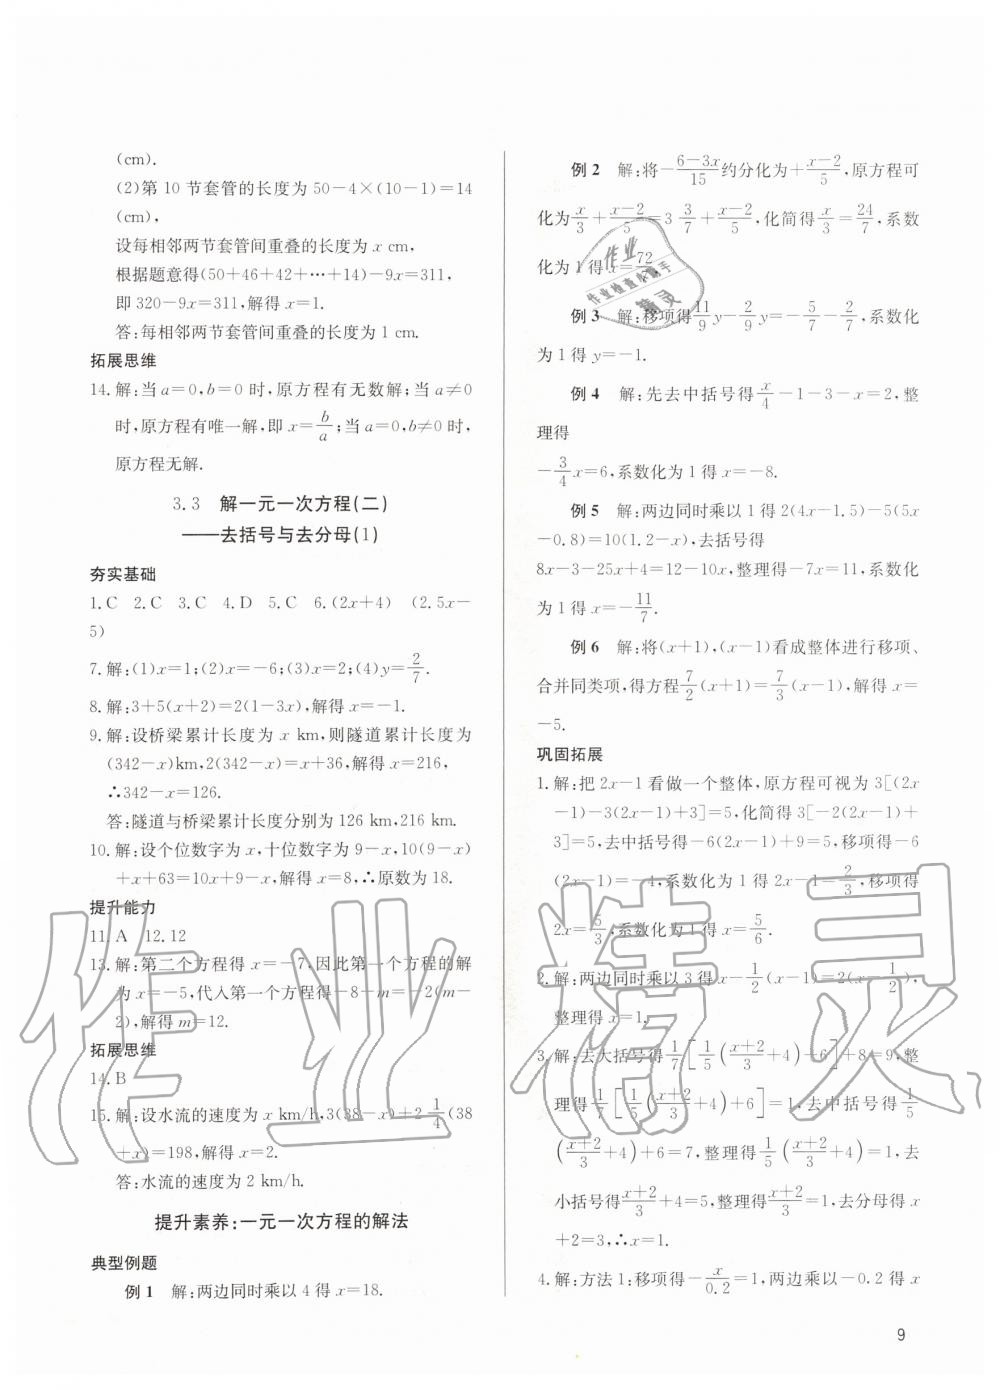 (cm).
(2)第 10 节套管的长度为 50-4×(10-1)=14
(cm),
设每相邻两节套管间重叠的长度为 x cm,
根据题意得(50+46+42+…+14)-9x=311,
即 320-9x=311,解得 x=1.
答:每相邻两节套管间重叠的长度为 1 cm.
拓展思维
14.解:当 a=0,b=0 时,原方程有无数解;当 a≠0
时,原方程有唯一解,即 x=b/a;当 a=0,b≠0 时,
原方程无解.
3.3 解一元一次方程(二)
——去括号与去分母(1)
夯实基础
1.C 2.C 3.C 4.D 5.C 6.(2x+4) (2.5x-
5)
7.解:(1)x=1;(2)x=-6;(3)x=2;(4)y=2/7.
8.解:3+5(x+2)=2(1-3x),解得 x=-1.
9.解:设桥梁累计长度为 x km,则隧道累计长度为
(342-x)km,2(342-x)=x+36,解得 x=216,
∴342-x=126.
答:隧道与桥梁累计长度分别为 126 km,216 km.
10.解:设个位数字为 x,十位数字为 9-x,10(9-x)
+x+63=10x+9-x,解得 x=8,∴原数为 18.
提升能力
11.A 12.12
13.解:第二个方程得 x=-7,因此第一个方程的解
为 x=-5,代入第一个方程得-8-m=-2(m-
2),解得 m=12.
拓展思维
14.B
15.解:设水流的速度为 x km/h,3(38-x)+2 1/4(38
+x)=198,解得 x=2.
答:水流的速度为 2 km/h.
提升素养:一元一次方程的解法
典型例题
例 1 解:两边同时乘以 4 得 x=18.
例 2 解:将-(6-3x)/15约分化为+(x-2)/5,原方程可
化为x/3+(x-2)/5=3 3/7+(x-2)/5,化简得x/3=24/7,系数
化为 1 得 x=72/7.
例 3 解:移项得11/9y-2/9y=-5/7-2/7,系数化
为 1 得 y=-1.
例 4 解:先去中括号得x/4-1-3-x=2,整
理得
-3/4x=6,系数化为 1 得 x=-8.
例 5 解:两边同时乘以 1 得 2(4x-1.5)-5(5x
-0.8)=10(1.2-x),去括号得
8x-3-25x+4=12-10x,整理得-7x=11,系数化
为 1 得 x=-11/7.
例 6 解:将(x+1),(x-1)看成整体进行移项、
合并同类项,得方程7/2(x+1)=7/3(x-1),解得 x=
-5.
巩固拓展
1.解:把 2x-1 看做一个整体,原方程可视为 3[(2x
-1)-3(2x-1)+3]=5,化简得 3[-2(2x-1)+
3]=5,去中括号得-6(2x-1)+9=5,移项得-6
(2x-1)=-4,系数化为 1 得 2x-1=2/3,移项得
2x=5/3,系数化为 1 得 x=5/6.
2.解:两边同时乘以 3 得 x-1/2(x-1)=2(x-1/2),
整理得 x=1.
3.解:去大括号得1/7[1/5((x+2)/3+4)+6]+8=9,整
理得1/7[1/5((x+2)/3+4)+6]=1,去中括号得1/5
((x+2)/3+4)+6=7,整理得1/5((x+2)/3+4)=1,去
小括号得(x+2)/3+4=5,整理得(x+2)/3=1,去分母得 x
+2=3,∴x=1.
4.解:方法 1:移项得-x/0.2=1,两边乘以-0.2 得 x
9
作业
作业检查小助手
精灵
作业精灵